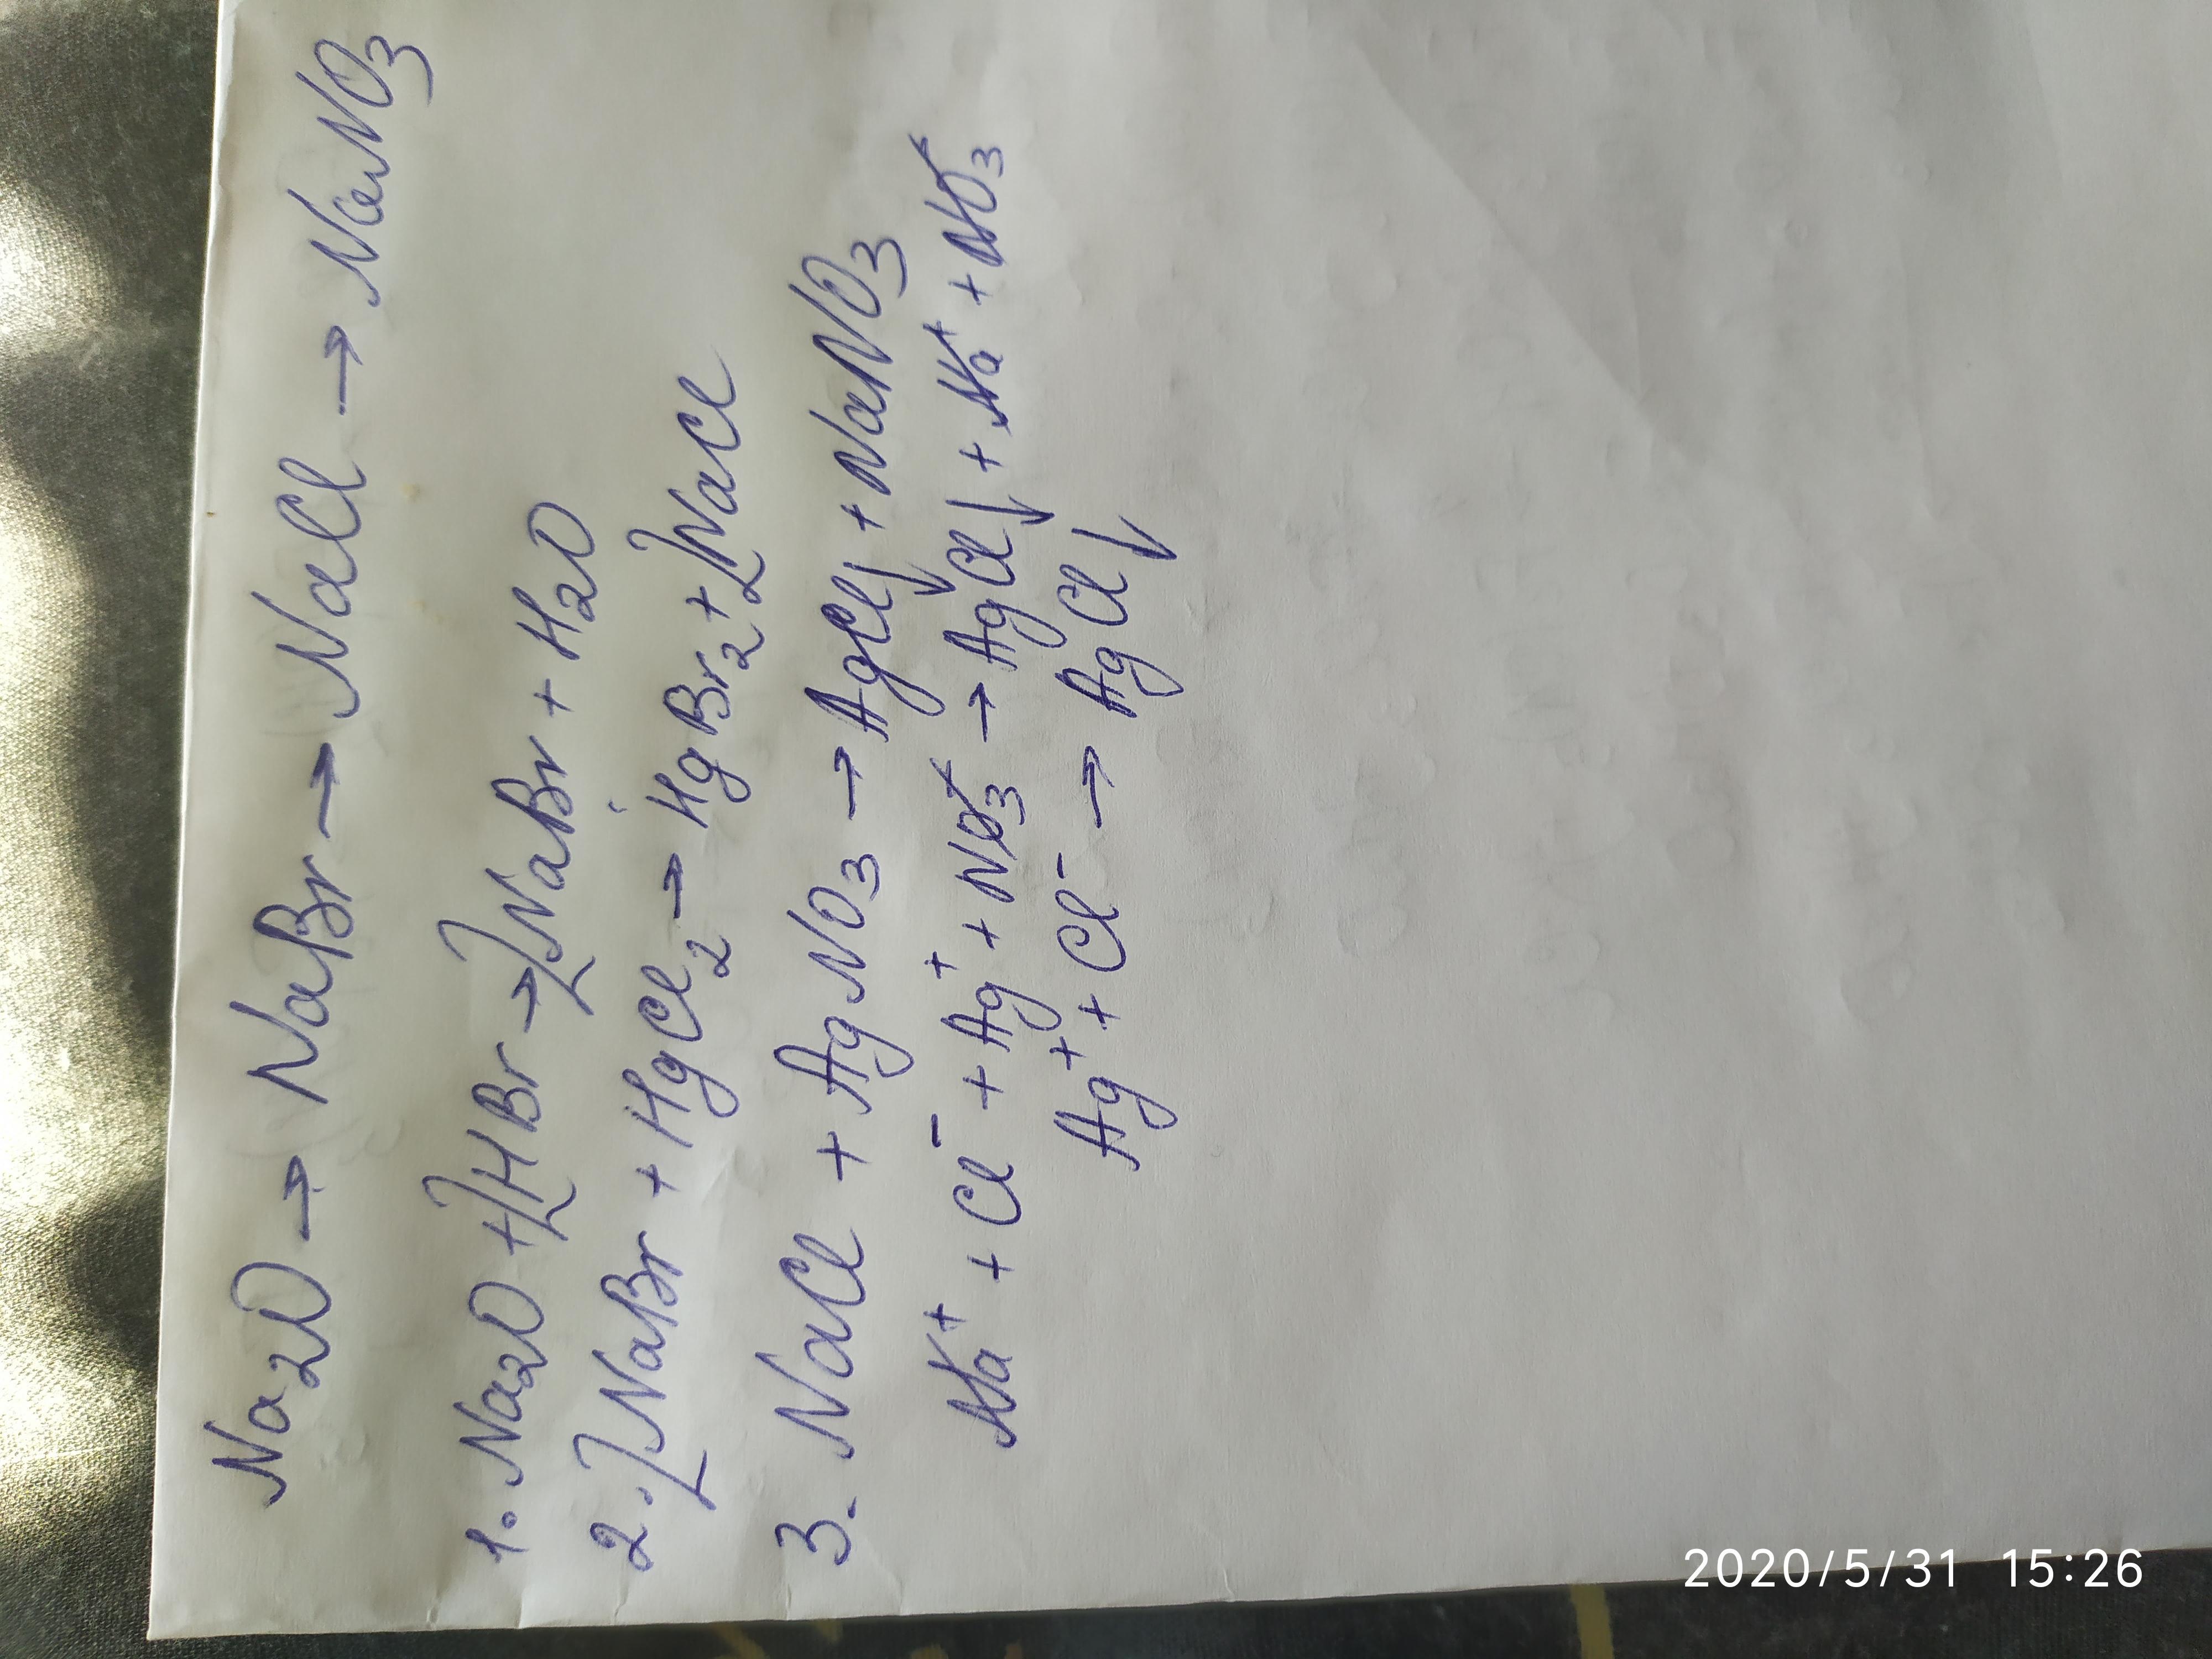 Na2O → NaBr → NaCl → NaNO3
1. Na2O + 2HBr → 2NaBr + H2O
2. 2NaBr + HgCl2 → HgBr2 + 2NaCl
3. NaCl + AgNO3 → AgCl↓ + NaNO3
Na+ + Cl- + Ag+ + NO3- → AgCl↓ + Na+ + NO3-
Ag+ + Cl- → AgCl↓
2020/5/31 15:26